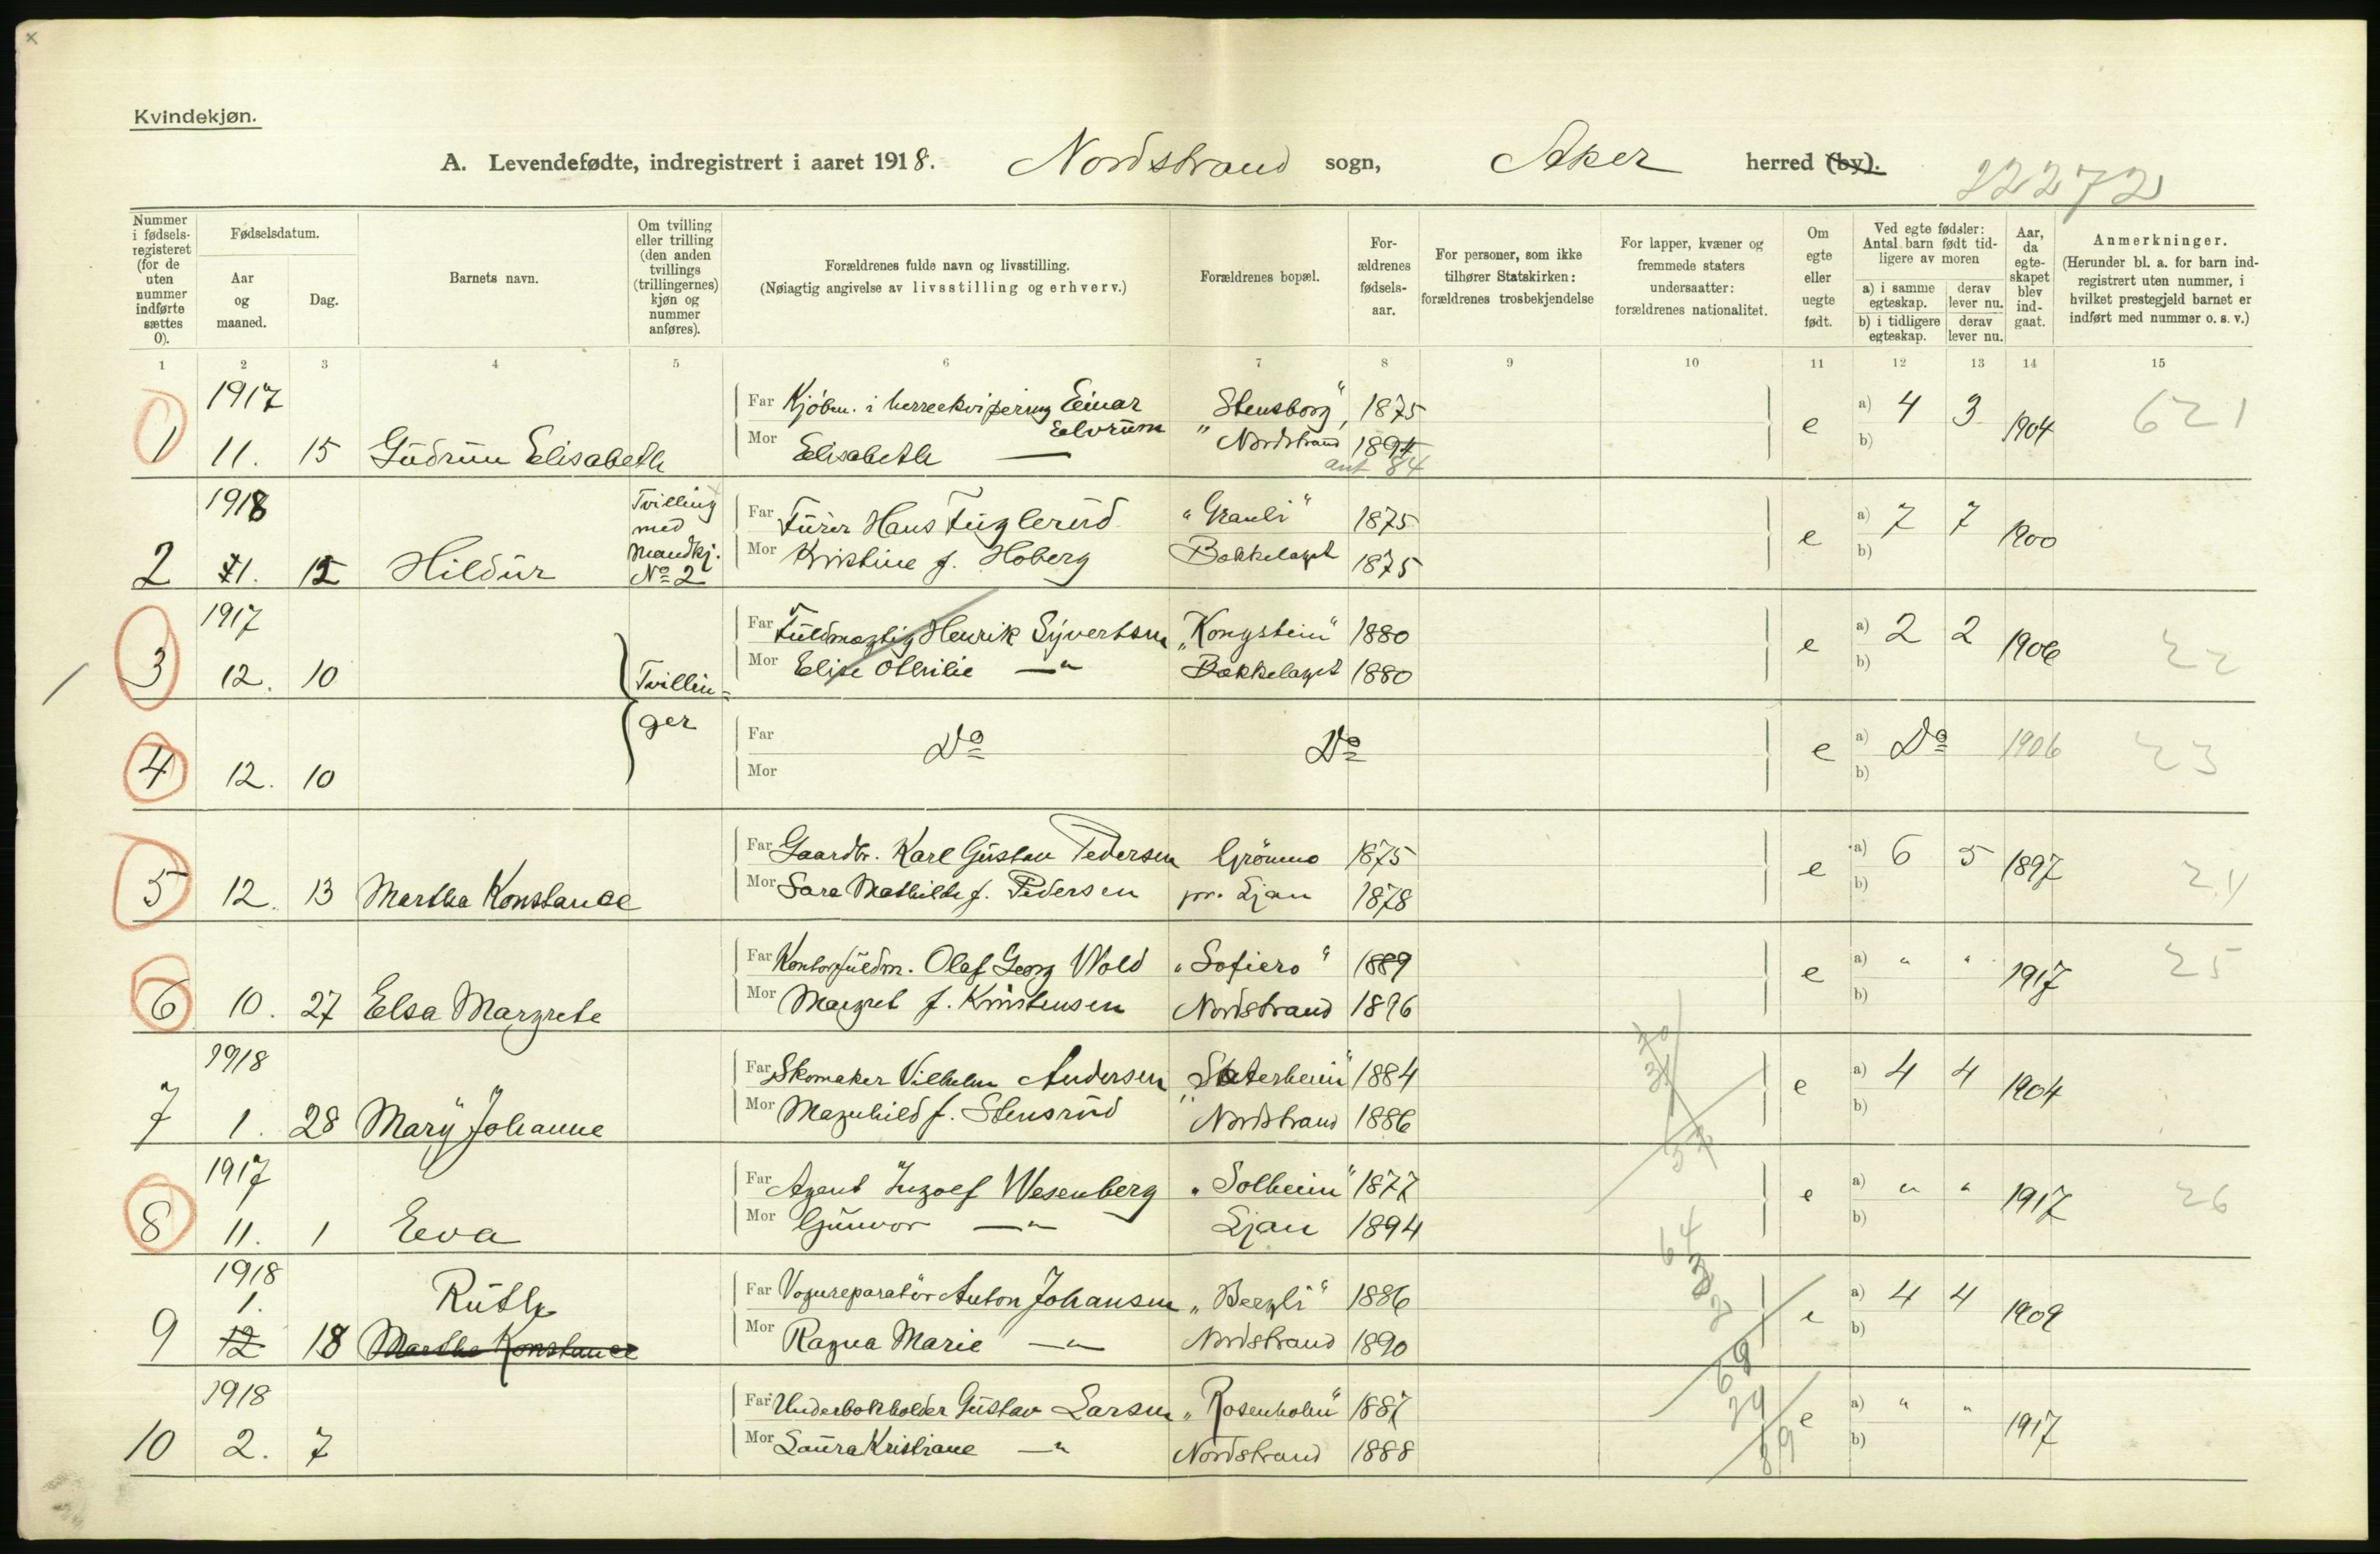 Kvindekjøn.
A. Levendefødte, indregistrert i aaret 1918. Nordstrand sogn, Aker herred (by).
22272
Nummer i fødselsregisteret (for de uten nummer indførte sættes 0).
Fødselsdatum.
Aar og maaned.
Dag.
Barnets navn.
Om tvilling eller trilling (den anden tvillings (trillingernes) kjøn og nummer anføres).
Forældrenes fulde navn og livsstilling.
(Nøiagtig angivelse av livsstilling og erhverv.)
Forældrenes bopæl.
Forældrenes fødselsaar.
For personer, som ikke tilhører Statskirken: forældrenes trosbekjendelse
For lapper, kvæner og fremmede staters undersaatter: forældrenes nationalitet.
Om egte eller uegte født.
Ved egte fødsler: Antal barn født tidligere av moren
a) i samme egteskap. derav lever nu.
b) i tidligere egteskap. derav lever nu.
Aar, da egteskapet blev indgaat.
Anmerkninger.
(Herunder bl. a. for barn indregistrert uten nummer, i hvilket prestegjeld barnet er indført med nummer o. s. v.)
1 2 3 4 5 6 7 8 9 10 11 12 13 14 15
1917 Far Kjøbm. i herreekvipering Einar Elvrum "Stensborg", 1875 a) 4 3 621
1 11. 15 Gudrun Elisabeth Mor Elisabeth — " Nordstrand 1894 e b) 1904
ant 84
1918 Tvilling med Mandkj. No 2 Far Furér Hans Fuglerud "Granli" 1875 a) 7 7
2 1. 15 Hildur Mor Kristine f. Hoberg Bækkelaget 1875 e b) 1900
1917 Far Fuldmægtig Henrik Syvertsen "Kongstein" 1880 a) 2 2
3 12. 10 Tvillin= Mor Elise Othilie —"— Bækkelaget 1880 e b) 1906 22
4 12. 10 ger Far Mor Do Do e a) Do b) 1906 23
Far Gaardbr. Karl Gustav Pedersen Grönmo 1875 a) 6 5
5 12. 13 Martha Konstance Mor Sara Mathilde f. Pedersen pr. Ljan 1878 e b) 1897 24
Far Kontorfuldm. Olaf Georg Wold "Sofiero" 1889 a) " " 25
6 10. 27 Elsa Margrete Mor Margret f. Kristensen Nordstrand 1896 e b) 1917
1918 Far Skomaker Vilhelm Andersen "Sæterheim" 1884 a) 4 4
7 1. 28 Mary Johanne Mor Magnhild f. Stensrud Nordstrand 1886 e b) 1904
1917 Far Agent Ingolf Wesenberg "Solheim" 1877 a) " "
8 11. 1 Eva Mor Gunvor —"— Ljan 1894 e b) 1917 26
1918 1. Ruth Far Vognreparatör Anton Johansen "Bergli" 1886 a) 4 4
9 12 18 Martha Konstance Mor Ragna Marie —"— Nordstrand 1890 e b) 1909
1918 Far Underbokholder Gustav Larsen "Rosenholm" 1887 a) " "
10 2. 7 Mor Laura Kristiane —"— Nordstrand 1888 e b) 1917